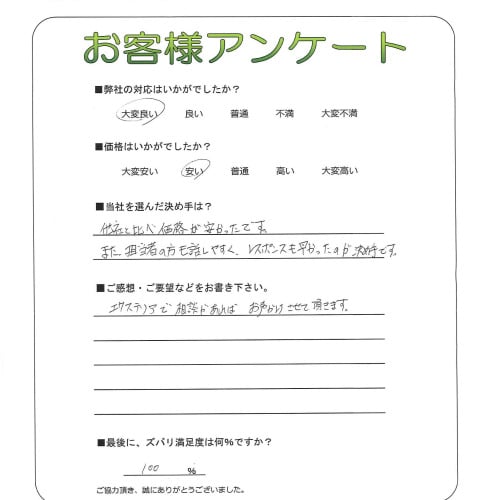 お客様アンケート
■弊社の対応はいかがでしたか？
大変良い 良い 普通 不満 大変不満
■価格はいかがでしたか？
大変安い 安い 普通 高い 大変高い
■当社を選んだ決め手は？
他社と比べ価格が安かったです。
また、担当者の方も話しやすく、レスポンスも早かったのが決め手です。
■ご感想・ご要望などをお書き下さい。
エクステリアで相談があれば お声かけさせて頂きます。
■最後に、ズバリ満足度は何％ですか？
100 ％
ご協力頂き、誠にありがとうございました。